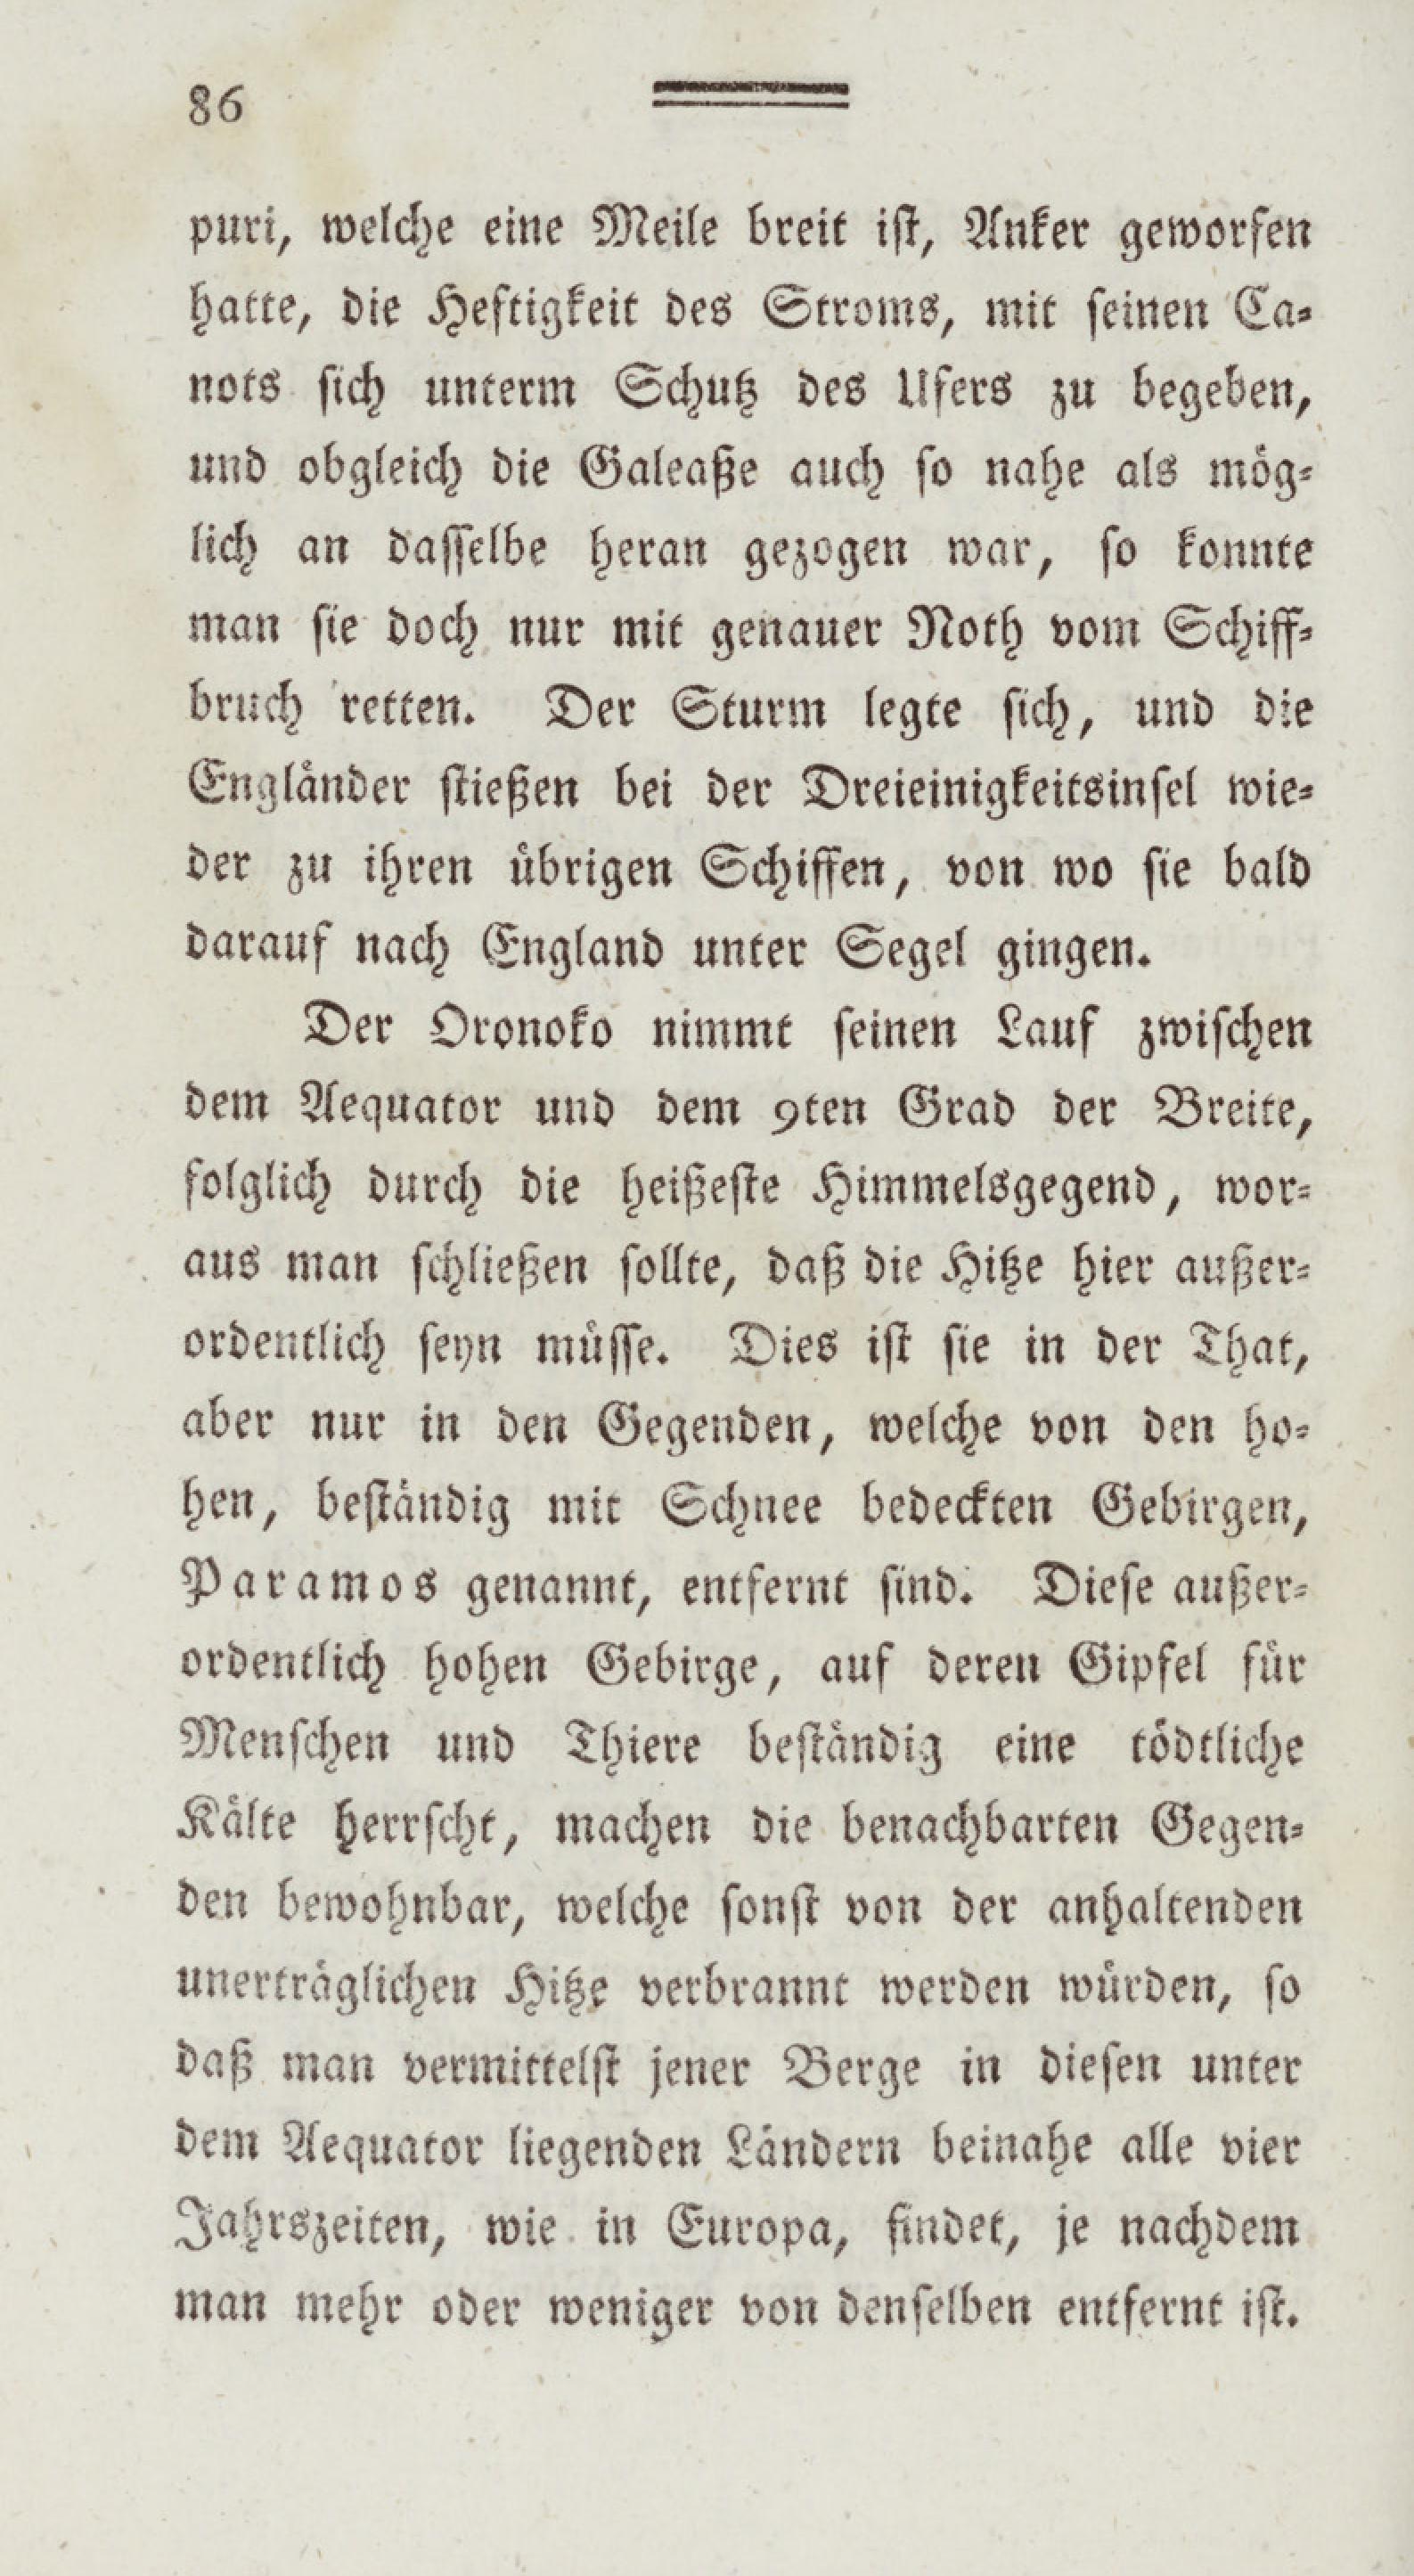 86
puri, welche eine Meile breit ist, Anker geworfen
hatte, die Heftigkeit des Stroms, mit seinen Ca-
nots sich unterm Schutz des Ufers zu begeben,
und obgleich die Galeaße auch so nahe als mög-
lich an dasselbe heran gezogen war, so konnte
man sie doch nur mit genauer Noth vom Schiff-
bruch retten. Der Sturm legte sich, und die
Engländer stießen bei der Dreieinigkeitsinsel wie-
der zu ihren übrigen Schiffen, von wo sie bald
darauf nach England unter Segel gingen.
Der Oronoko nimmt seinen Lauf zwischen
dem Aequator und dem 9ten Grad der Breite,
folglich durch die heißeste Himmelsgegend, wor-
aus man schließen sollte, daß die Hitze hier außer-
ordentlich seyn müsse. Dies ist sie in der That,
aber nur in den Gegenden, welche von den ho-
hen, beständig mit Schnee bedeckten Gebirgen,
Paramos genannt, entfernt sind. Diese außer-
ordentlich hohen Gebirge, auf deren Gipfel für
Menschen und Thiere beständig eine tödtliche
Kälte herrscht, machen die benachbarten Gegen-
den bewohnbar, welche sonst von der anhaltenden
unerträglichen Hitze verbrannt werden würden, so
daß man vermittelst jener Berge in diesen unter
dem Aequator liegenden Ländern beinahe alle vier
Jahrszeiten, wie in Europa, findet, je nachdem
man mehr oder weniger von denselben entfernt ist.